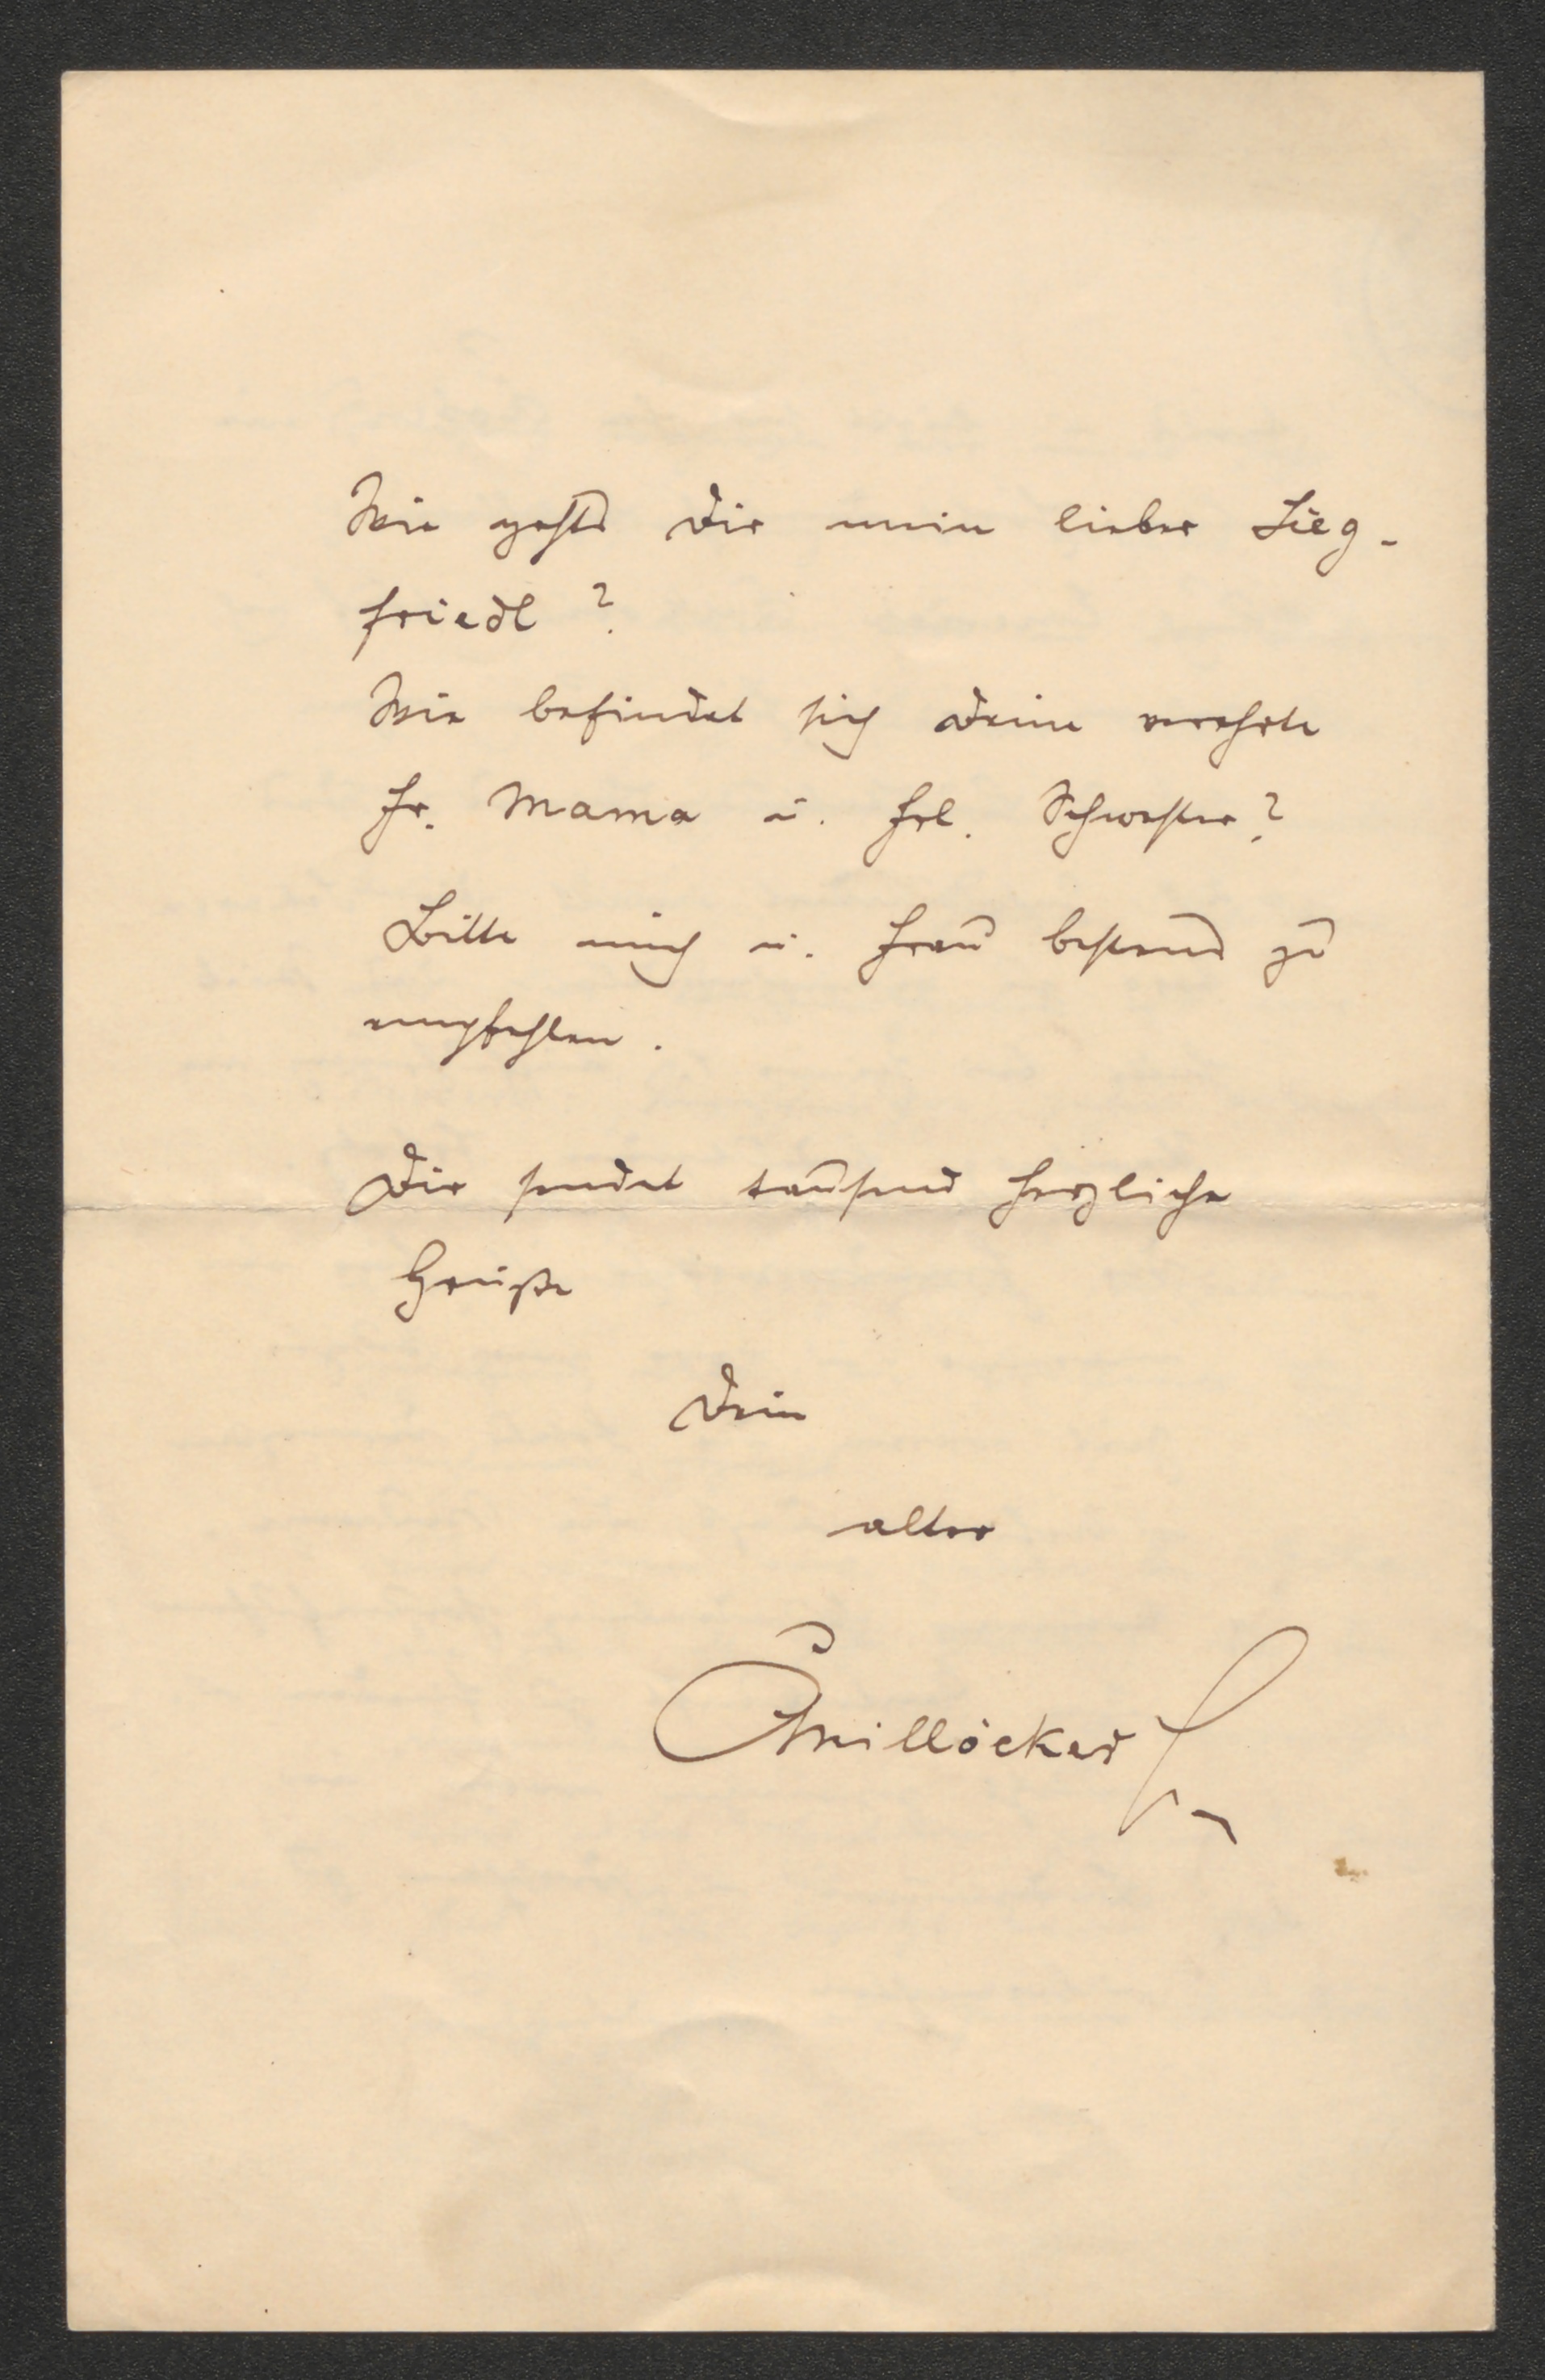 Wie gehts Dir mein lieber Sieg-
friedl?
Wie befindet sich Deine verehrte
Fr. Mama u. Frl. Schwester?
Bitte mich u. Frau bestens zu
empfehlen.
Dir sendet tausend herzliche
Grüße
Dein
alter
CMillöcker